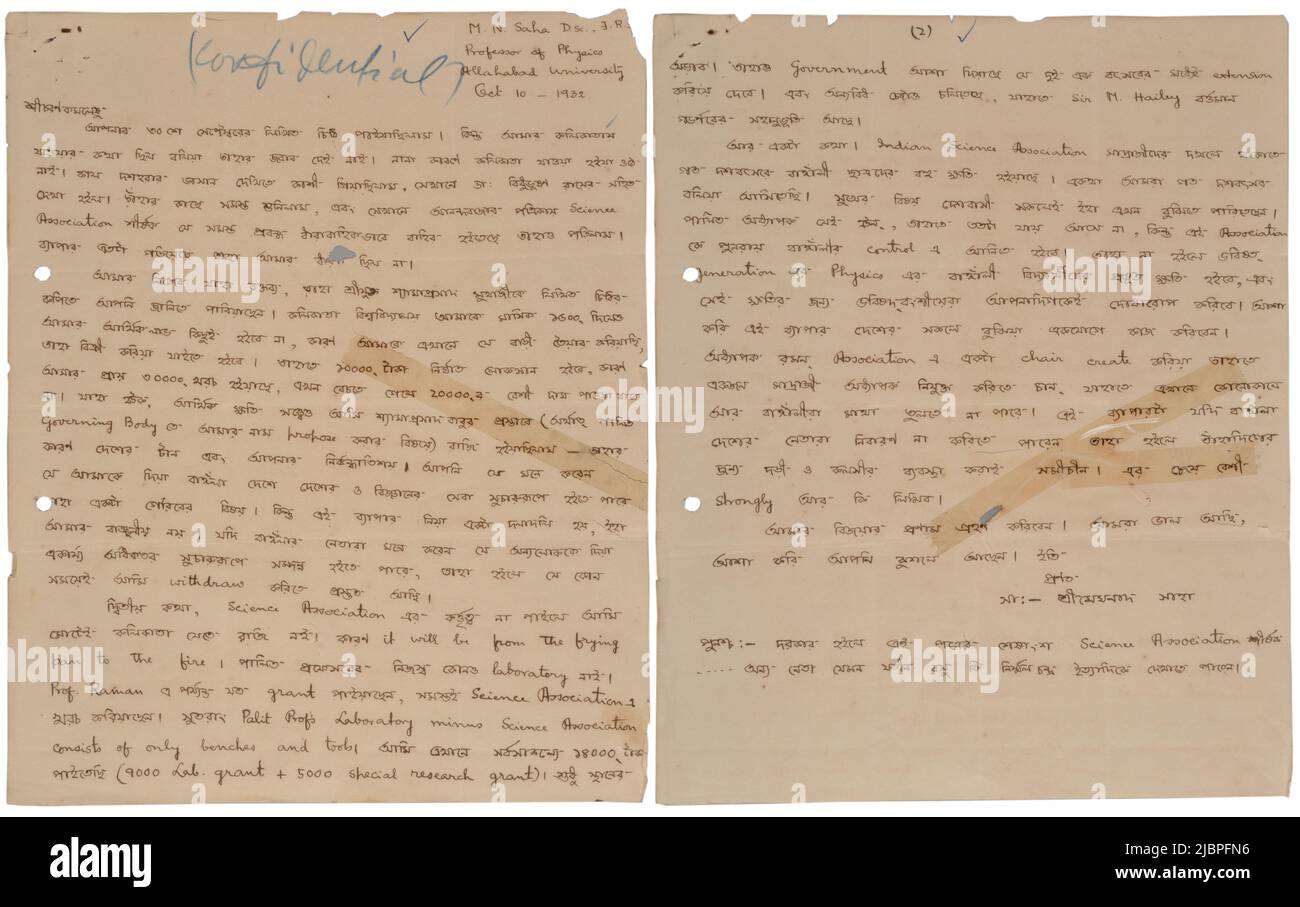 Confidential
M. N. Saha D.Sc., F.R.
Professor of Physics
Allahabad University
Oct 10 - 1932.
শ্রীচরণকমলেষু
আপনার ৩০শে সেপ্টেম্বরের লিখিত চিঠি পাইয়াছিলাম। কিন্তু আমার কলিকাতায়
যাইবার কথা ছিল বলিয়া তাহার জবাব দেই নাই। নানা কারণে কলিকাতা যাওয়া হইয়া ওঠে
নাই। কাল দশহরার ভাসান দেখিতে কাশী গিয়াছিলাম, সেখানে ডাঃ বিধুভূষণ রায়ের সহিত
দেখা হইল। তাঁহার কাছে সমস্ত শুনিলাম, এবং সেখানে আনন্দবাজার পত্রিকায় Science
Association শীর্ষক যে সমস্ত প্রবন্ধ ধারাবাহিকভাবে বাহির হইতেছে তাহাও পড়িলাম।
ব্যাপার এতটা আমার ছিল না।
আমার নিজের যাহা বক্তব্য, তাহা শ্রীযুক্ত শ্যামাপ্রসাদ মুখার্জীকে লিখিত চিঠির
কপিতে আপনি জানিতে পারিয়াছেন। কলিকাতা বিশ্ববিদ্যালয় আমাকে মাসিক ১৫০০ দিলেও
আমার আর্থিক লাভ কিছুই হইবে না, কারণ আমাকে এখানে যে বাড়ী তৈয়ার করিয়াছি,
তাহা বিক্রী করিয়া যাইতে হইবে। তাহাতে ১০০০০ টাকা নির্ঘাত লোকসান হইবে, কারণ
আমার প্রায় ৩০০০০ খরচ হইয়াছে, এখন বেচতে গেলে ২০০০০র বেশী দাম পাওয়া যাবে
না। যাহা হউক, আর্থিক ক্ষতি সত্ত্বেও আমি শ্যামাপ্রসাদ বাবুর প্রস্তাবে (অর্থাৎ পালিত
Governing Body তে আমার নাম propose করার বিষয়ে) রাজি হইয়াছিলাম — তাহার
কারণ দেশের টান এবং আপনার নির্ব্বন্ধাতিশয়। আপনি যে মনে করেন
যে আমাকে দিয়া বাঙ্গলা দেশে দেশের ও বিজ্ঞানের সেবা সুচারুরূপে হইতে পারে
তাহা একটা গৌরবের বিষয়। কিন্তু এই ব্যাপার নিয়া একটা দলাদলি হয়, ইহা
আমার বাঞ্ছনীয় নয়। যদি বাঙ্গলার নেতারা মনে করেন যে অন্যলোককে দিয়া
একার্য্য অধিকতর সুচারুরূপে সম্পন্ন হইতে পারে, তাহা হইলে যে কোন
সময়েই আমি withdraw করিতে প্রস্তুত আছি।
দ্বিতীয় কথা, Science Association এর কর্ত্তৃত্ব না পাইলে আমি
মোটেই কলিকাতা যেতে রাজি নই। কারণ it will be from the frying
pan to the fire। পালিত প্রফেসারের নিজস্ব কোনও laboratory নাই।
Prof. Raman এ পর্য্যন্ত যত grant পাইয়াছেন, সমস্তই Science Association এ
খরচ করিয়াছেন। সুতরাং Palit Prof's Laboratory minus Science Association
consists of only benches and tools। আমি এখানে সর্বসাকল্যে ১৪০০০ টাকা
পাইতেছি (9000 Lab. grant + 5000 special research grant)। শুধু স্থানের
(2)
অভাব। তাহাও Government আশা দিয়াছে যে দুই এক বৎসরের মধ্যেই extension
করিয়ে দেবে। এবং অন্যবিধ চেষ্টাও চলিতেছে, যাহাতে Sir M. Hailey বর্ত্তমান
গভর্ণরের সহানুভূতি আছে।
আর একটা কথা। Indian Science Association মাদ্রাজীদের দখলে থাকাতে
গত দশবৎসরে বাঙ্গালী ছাত্রদের বহু ক্ষতি হইয়াছে। একথা আমরা গত দশবৎসর
বলিয়া আসিতেছি। সুখের বিষয় দেশবাসী সকলেই ইহা এখন বুঝিতে পারিতেছেন।
পালিত অধ্যাপক যেই হউন, তাহাতে ততটা যায় আসে না, কিন্তু এই Association
কে পুনরায় বাঙ্গালীর control এ আনিতে হইবে। তাহা না হইলে ভবিষ্যৎ
generation এর Physics এর বাঙ্গালী বিদ্যার্থীদের প্রভূত ক্ষতি হইবে, এবং
সেই ক্ষতির জন্য ভবিষ্যদ্বংশীয়েরা আপনাদিগকেই দোষারোপ করিবে। আশা
করি এই ব্যাপার দেশের সকলে বুঝিয়া একযোগে কাজ করিবেন।
অধ্যাপক রমন Association এ একটা chair create করিয়া তাহাতে
একজন মাদ্রাজী অধ্যাপক নিযুক্ত করিতে চান, যাহাতে এখানে কোনোকালে
আর বাঙ্গালীরা মাথা তুলতে না পারে। এই ব্যাপারটা যদি বাঙ্গলা
দেশের নেতারা নিবারণ না করিতে পারেন তাহা হইলে তাঁহাদিগের
জন্য দড়ী ও কলসীর ব্যবস্থা করাই সমীচীন। এর চেয়ে বেশী
strongly আর কি লিখিব।
আমার বিজয়ার প্রণাম গ্রহণ করিবেন। আমরা ভাল আছি,
আশা করি আপনি কুশলে আছেন। ইতি
প্রণত
সাঃ- শ্রীমেঘনাদ সাহা
পুনশ্চ:- দরকার হইলে এই পত্রের শেষাংশ Science Association শীর্ষক
.... অন্য নেতা যেমন বসু কি নির্ম্মলচন্দ্র ইত্যাদিকে দেখাতে পারেন।
alamy
Image ID: 2JBPFN6
www.alamy.com